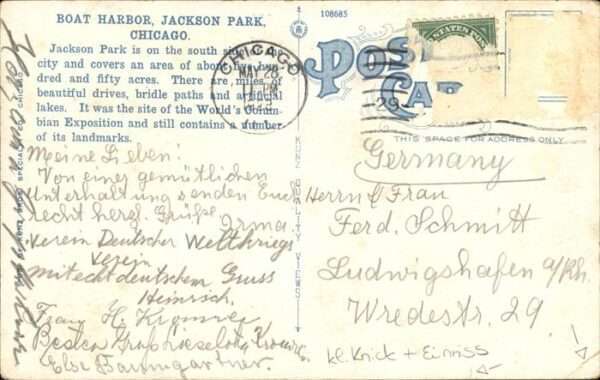 BOAT HARBOR, JACKSON PARK,
CHICAGO.
Jackson Park is on the south side of the
city and covers an area of about five hun-
dred and fifty acres. There are miles of
beautiful drives, bridle paths and artificial
lakes. It was the site of the World's Colum-
bian Exposition and still contains a number
of its landmarks.
Meine Lieben!
Von einer gemütlichen
Unterhaltung senden Euch
recht herzl. Grüße
Irma.
Verein Deutscher Weltkriegs
Verein
mit echt deutschem Gruss
Heinrich.
Franz H.
Else Baumgartner.
108685
POST
CA
CHICAGO
MAY 28
PM
THIS SPACE FOR ADDRESS ONLY
Germany
Herrn & Frau
Ferd. Schmitt
Ludwigshafen a/Rh.
Wredestr. 29
kl. Knick + Einriss
QUALITY VIEWS